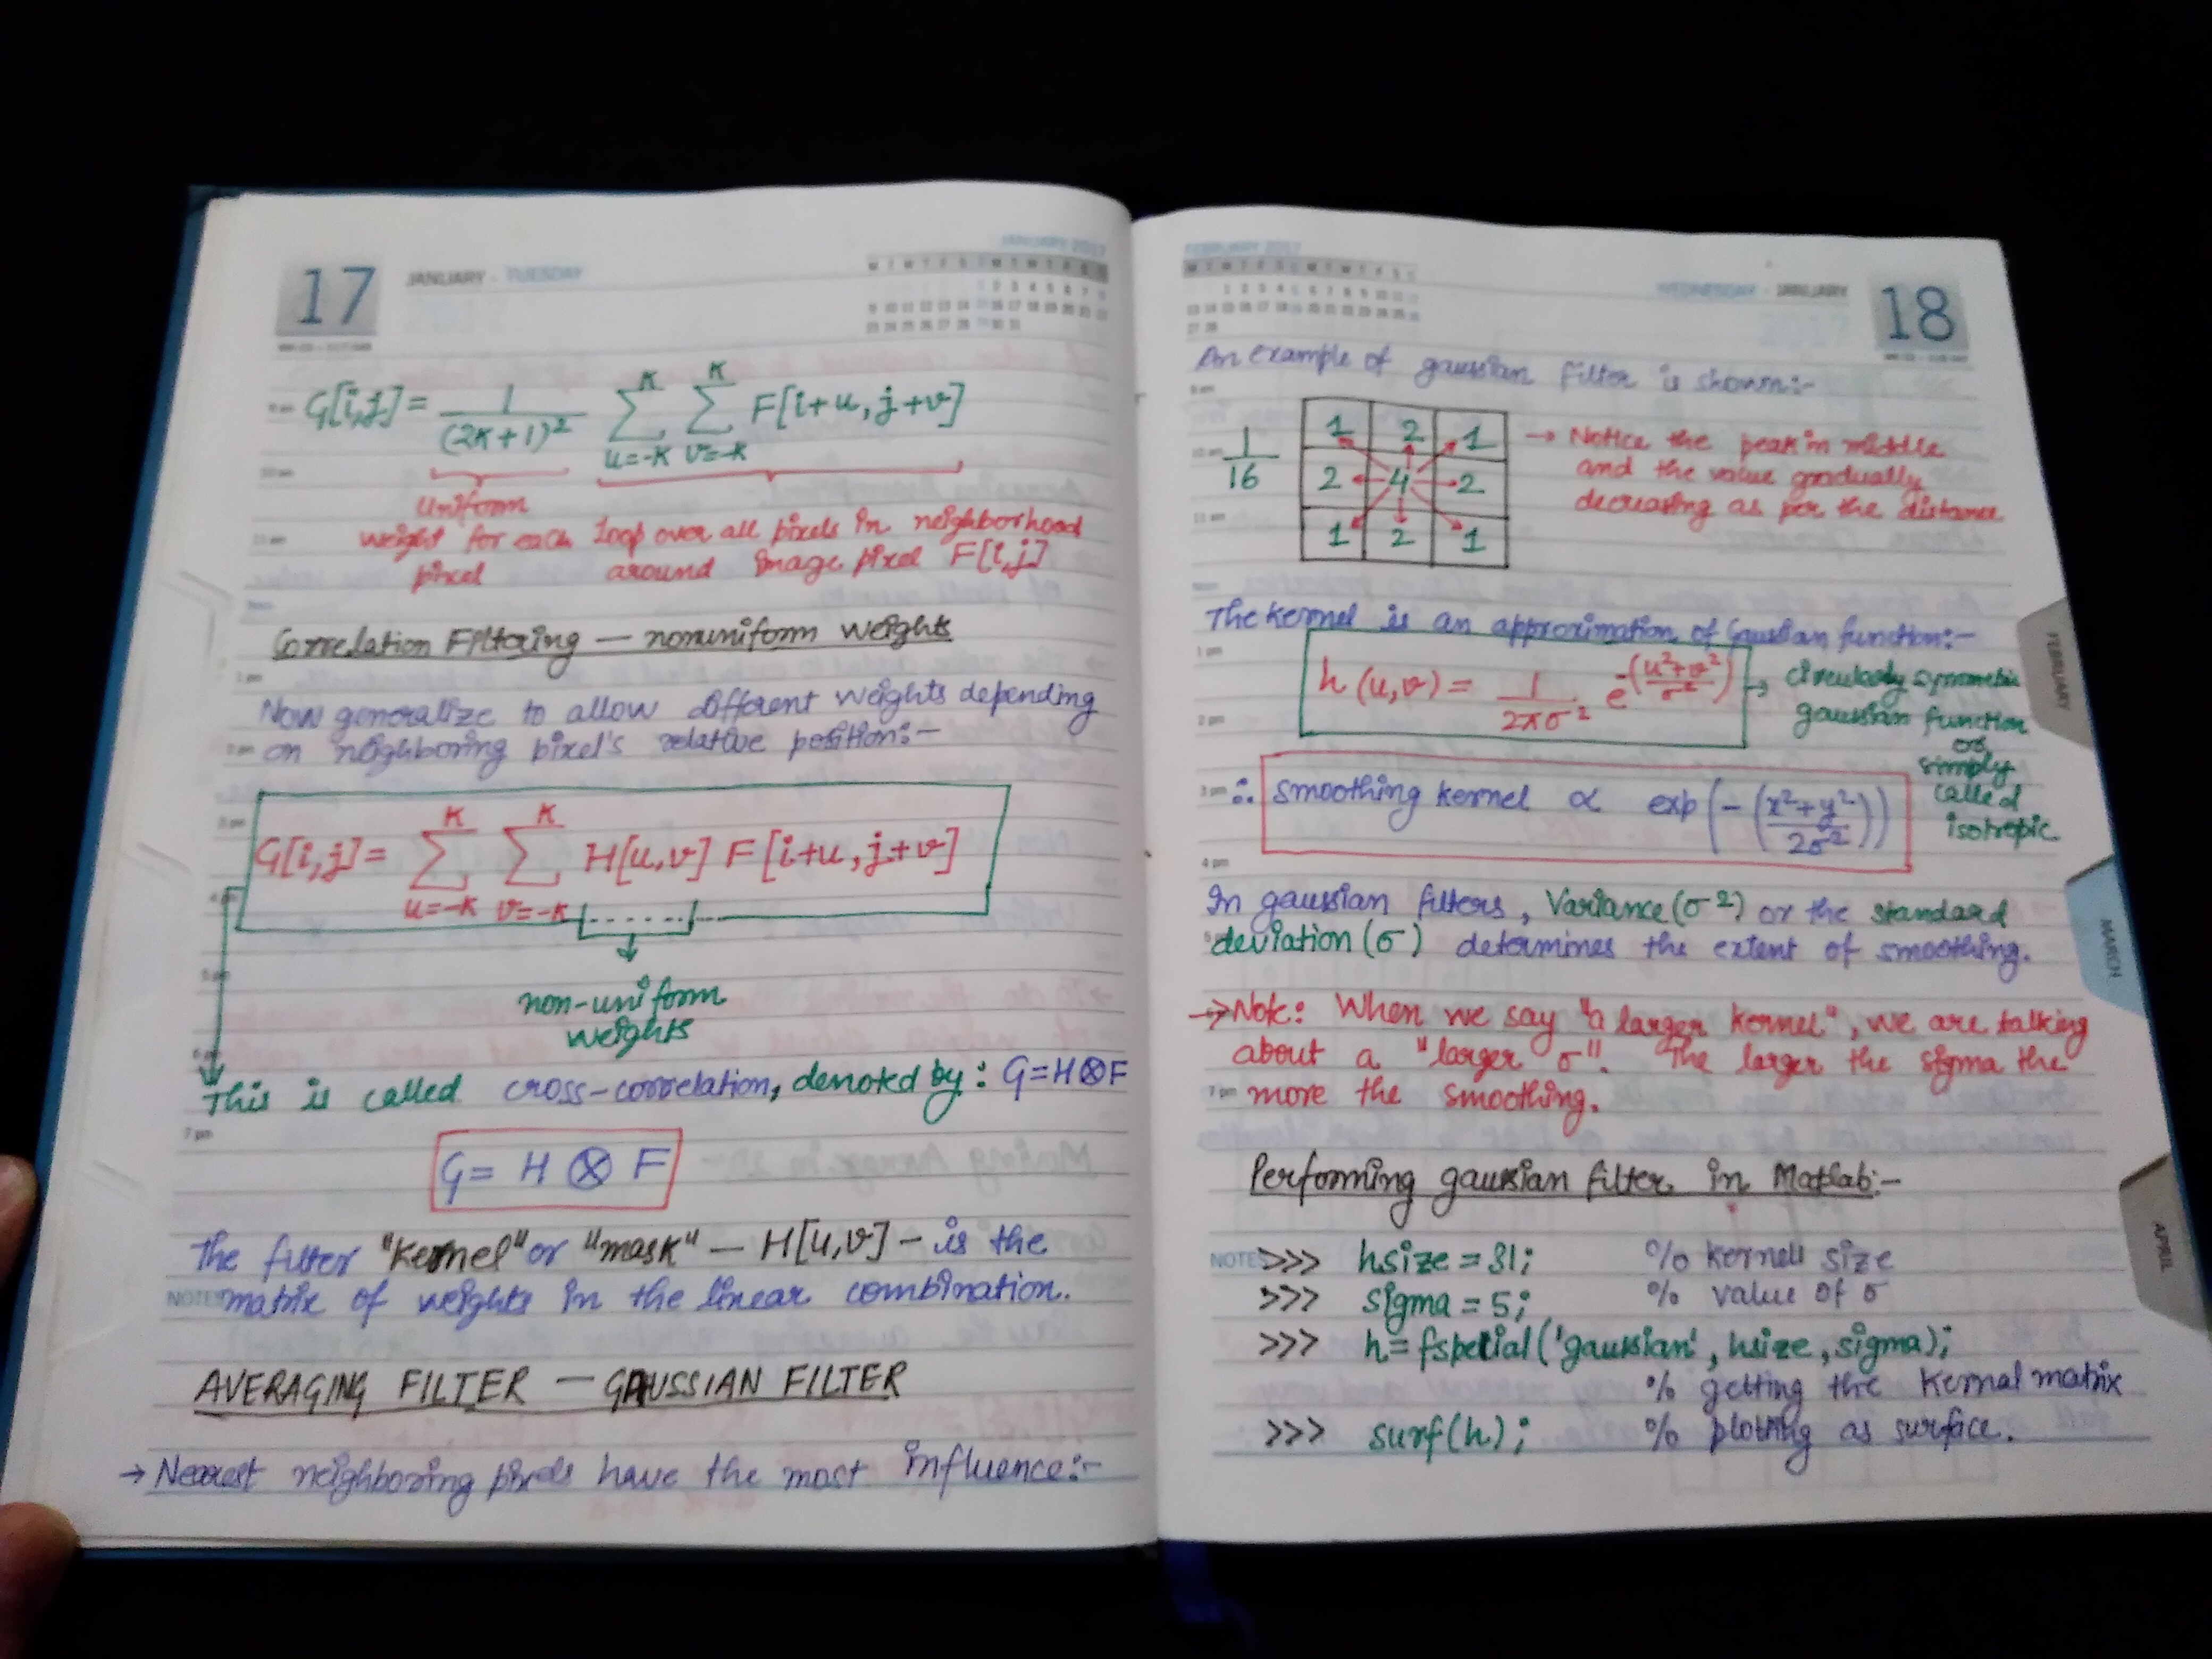 17
JANUARY - TUESDAY
G[i,j] = 1/(2K+1)² Σ_{u=-K}^{K} Σ_{v=-K}^{K} F[i+u, j+v]
Uniform weight for each pixel
loop over all pixels in neighborhood around image pixel F[i,j]
Correlation Filtering — nonuniform weights
Now generalize to allow different weights depending
on neighboring pixel's relative position:-
G[i,j] = Σ_{u=-K}^{K} Σ_{v=-K}^{K} H[u,v] F[i+u, j+v]
non-uniform
weights
This is called cross-correlation, denoted by: G=H⊗F
G = H ⊗ F
The filter "Kernel" or "mask" — H[u,v] - is the
matrix of weights in the linear combination.
NOTES
AVERAGING FILTER — GAUSSIAN FILTER
→ Nearest neighboring pixels have the most influence:-
WEDNESDAY - JANUARY
18
An example of gaussian filter is shown:-
1/16
1 2 1
2 4 2
1 2 1
→ Notice the peak in middle
and the value gradually
decreasing as per the distance
The kernel is an approximation of Gaussian function:-
h(u,v) = 1/(2πσ²) e^-((u²+v²)/σ²)
→ circularly symmetric
gaussian function
or
simply
called
isotropic
∴ Smoothing kernel ∝ exp(-((x²+y²)/2σ²))
In gaussian filters, Variance(σ²) or the standard
deviation(σ) determines the extent of smoothing.
→ Note: When we say "a larger kernel", we are talking
about a "larger σ". The larger the sigma the
more the smoothing.
Performing gaussian filter in Matlab:-
NOTES
>>> hsize = 31; % kernel size
>>> sigma = 5; % value of σ
>>> h = fspecial('gaussian', hsize, sigma);
% getting the Kernel matrix
>>> surf(h); % plotting as surface.
FEBRUARY
MARCH
APRIL